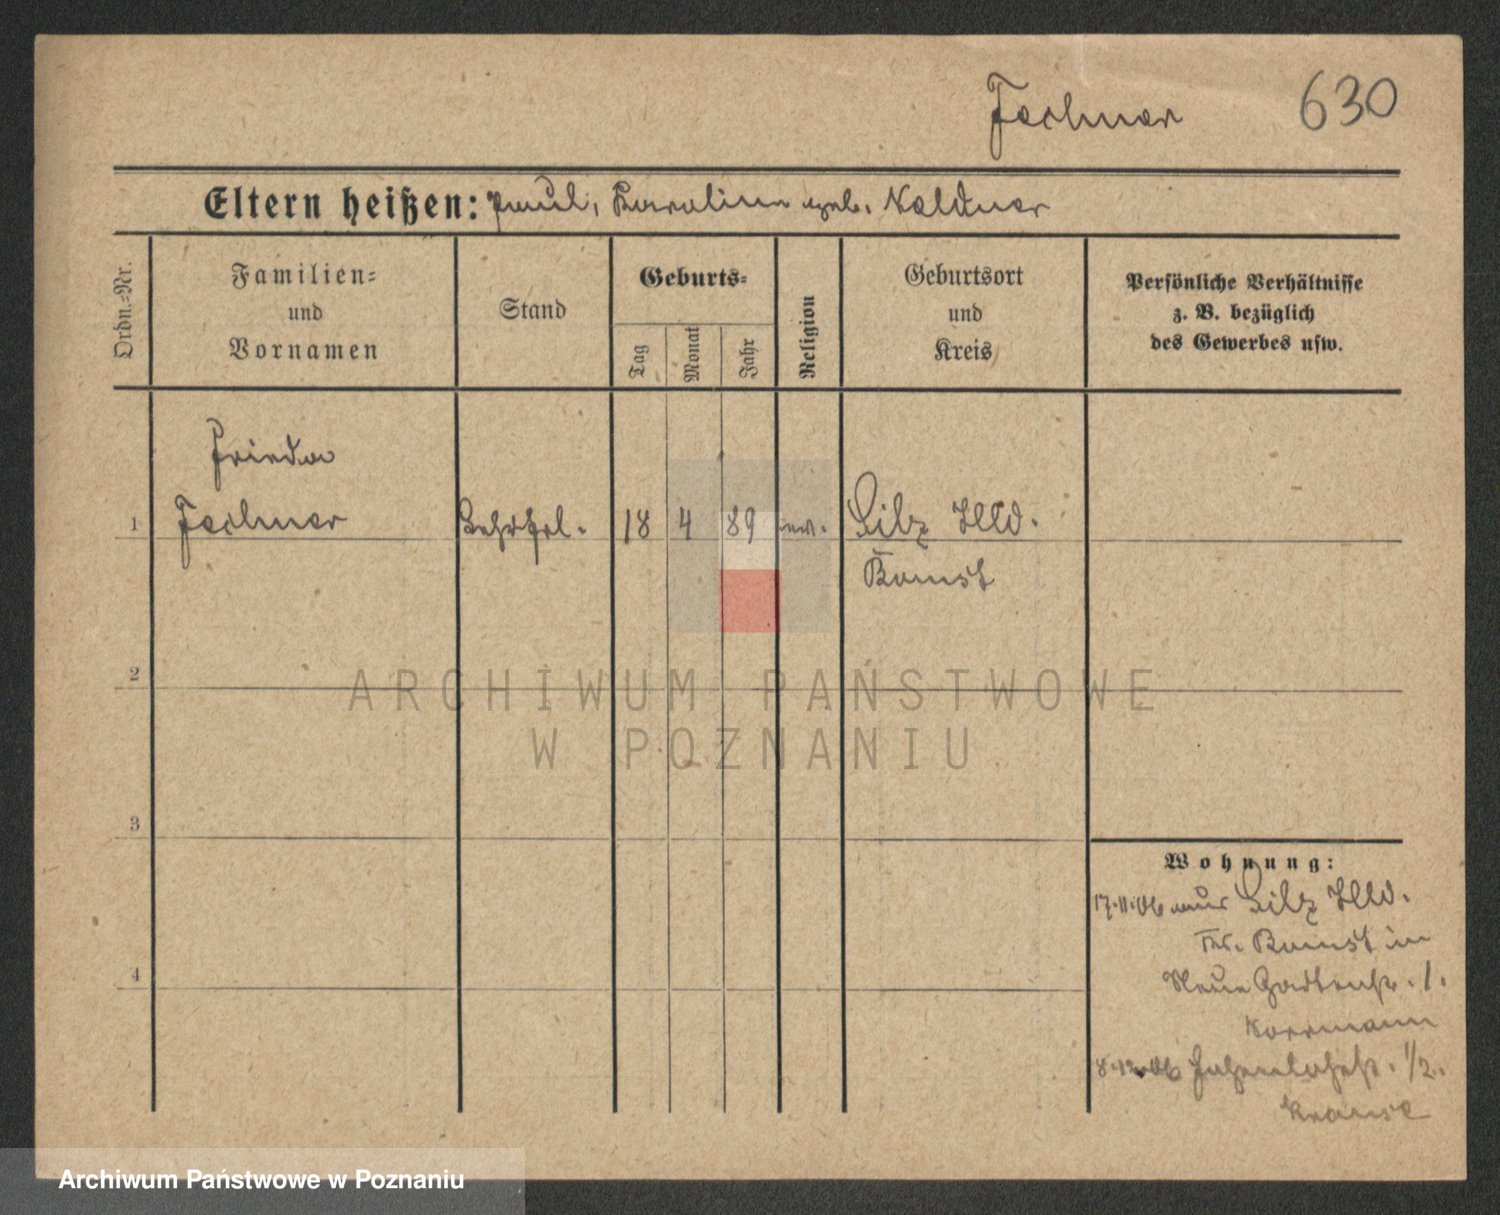 Fechner 630
Eltern heißen: Paul, Karoline geb. Neldner
Ordn.=Nr.
Familien=
und
Vornamen
Stand
Geburts=
Tag
Monat
Jahr
Religion
Geburtsort
und
Kreis
Persönliche Verhältnisse
z. B. bezüglich
des Gewerbes usw.
Frieda
1 Fechner 18 4 89 ev. Silz Hld.
Bomst
2
3
4
ARCHIWUM PAŃSTWOWE
W POZNANIU
Wohnung:
17.11.06 aus Silz Hld.
Kr. Bomst in
Neue Gartenstr. 1.
8.12.06 Hohenlohestr. 1/2.
Krause
Archiwum Państwowe w Poznaniu